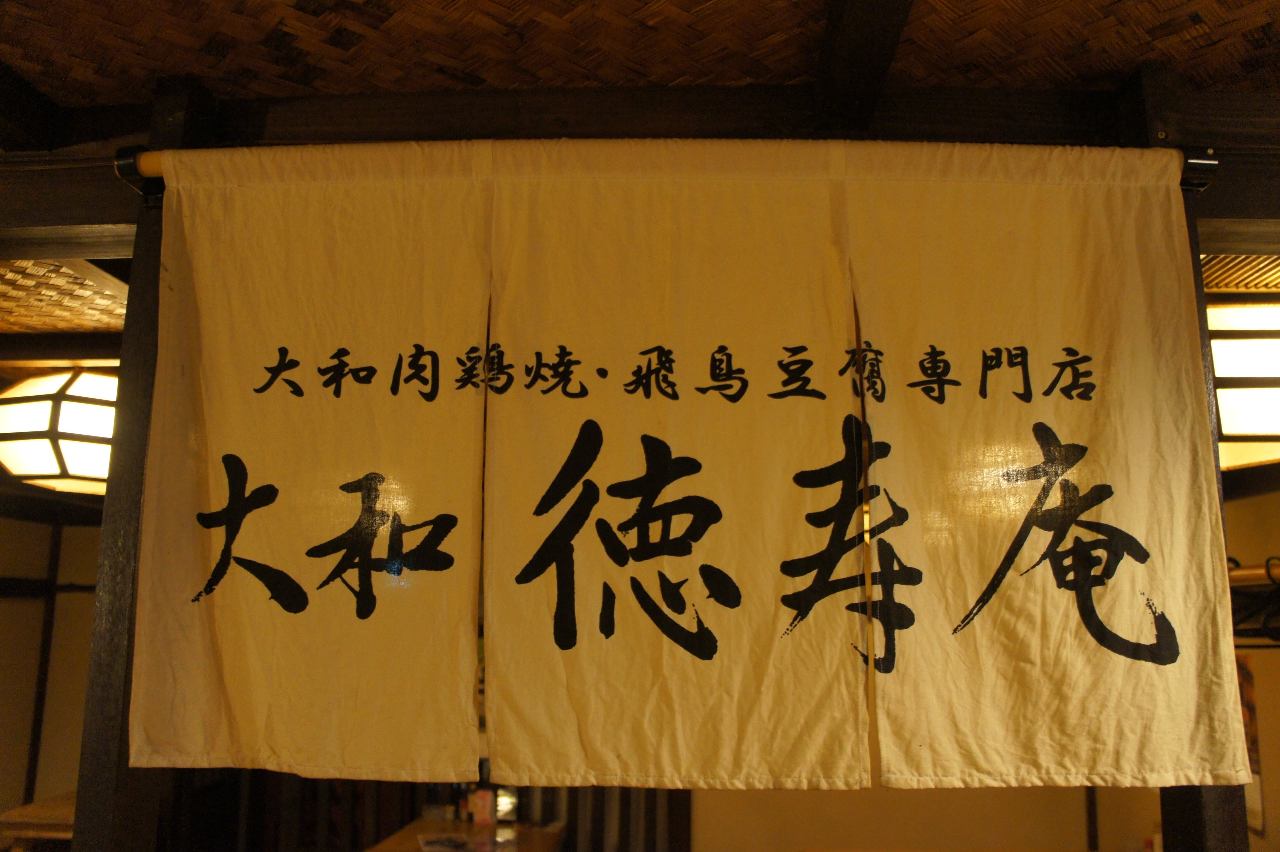 大和肉鶏焼・飛鳥豆腐専門店
大和徳寿庵